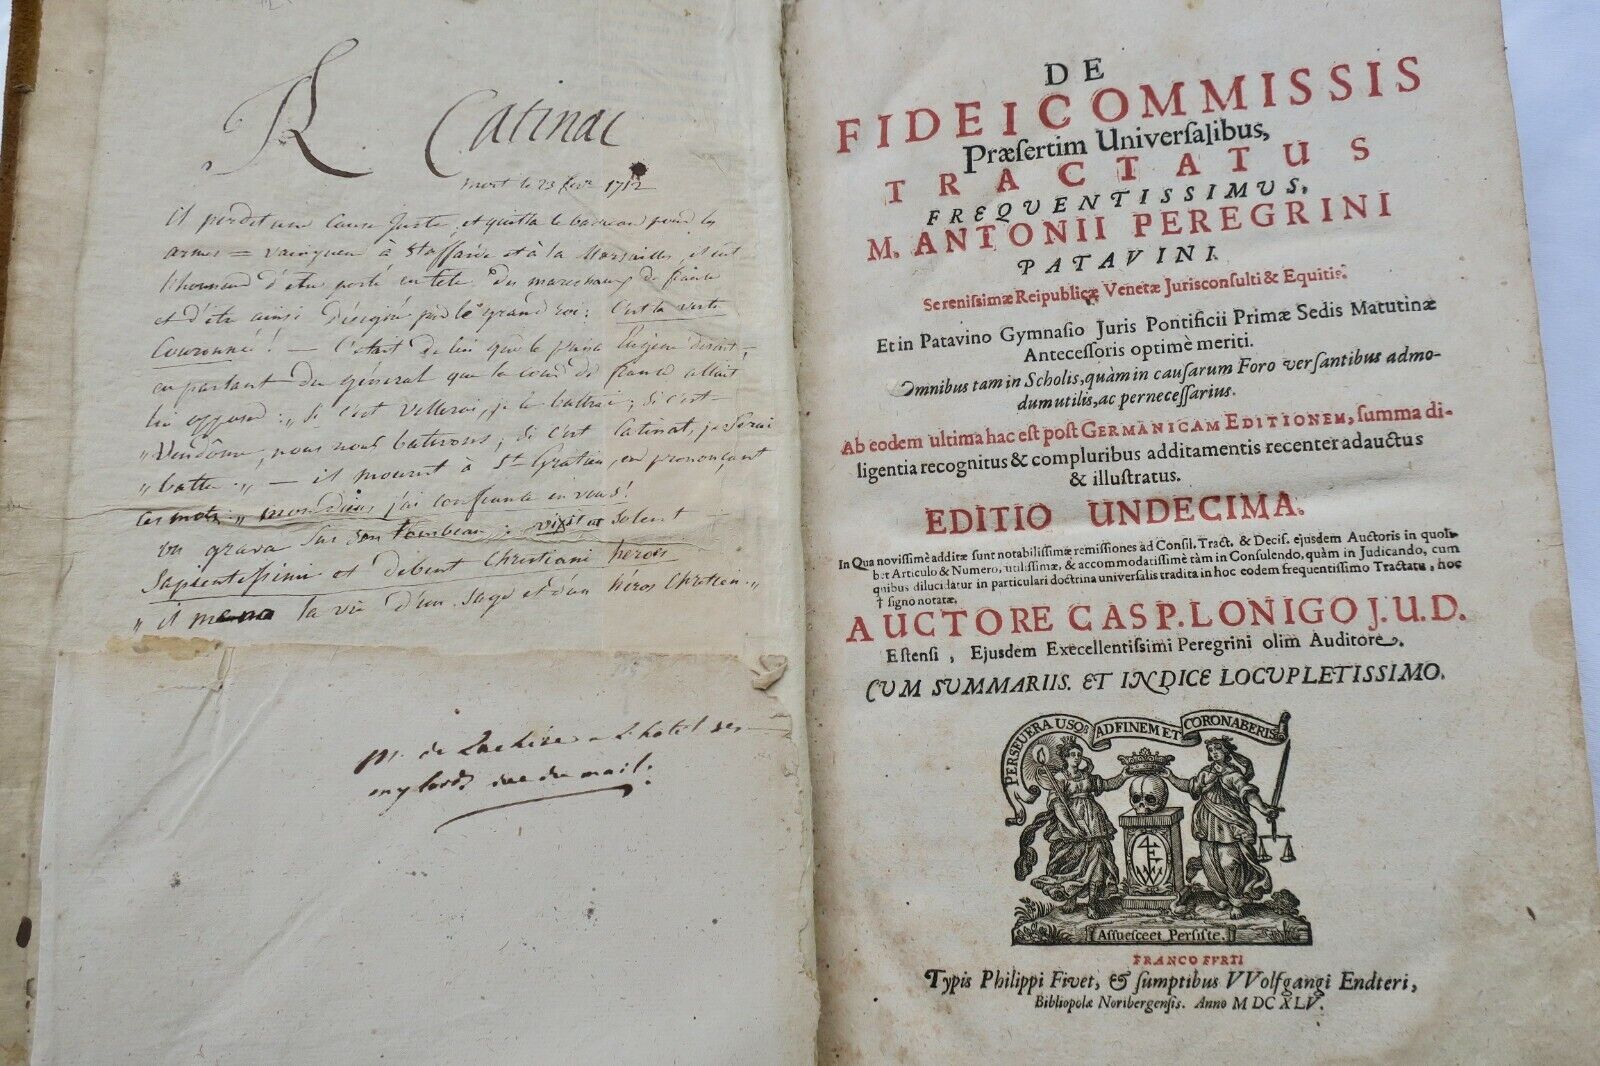 R Catinat
mort le 23 fevr 1712
il perdit une cause juste, et quitta le barreau pour les
armes = vainqueur à Staffarde et à la Marsailles, il eut
l'honneur d'être porté en tête des marechaux de france
et d'être ainsi désigné par le grand roi: c'est la vertu
couronnée! — c'etait de lui que le prince Eugène disait,
en parlant du général que la cour de france allait
lui opposer: „ Si c'est Villeroi, je le battrai; si c'est
„ Vendôme, nous nous battrons; si c'est Catinat, je serai
„ battu „ — il mourut à St Gratien, en prononçant
ces mots: „ mon dieu, j'ai confiance en vous!
on grava sur son tombeau: vixit ut solent
sapientissimi et debent Christiani heroes
„ il mena la vie d'un sage et d'un héros Chretien „
m. de a L'hotel des
mylords rue du mail.
DE
FIDEICOMMISSIS
Præsertim Universalibus,
TRACTATUS
FREQUENTISSIMUS,
M. ANTONII PEREGRINI
PATAVINI.
Serenissimæ Reipublicæ Venetæ Jurisconsulti & Equitis.
Et in Patavino Gymnasio Juris Pontificii Primæ Sedis Matutinæ
Antecessoris optimè meriti.
Omnibus tam in Scholis, quàm in causarum Foro versantibus admo-
dum utilis, ac pernecessarius.
Ab eodem ultima hac est post GERMANICAM EDITIONEM, summa di-
ligentia recognitus & compluribus additamentis recenter adauctus
& illustratus.
EDITIO UNDECIMA.
In Qua novissimè additæ sunt notabilissimæ remissiones ad Consil. Tract. & Decis. ejusdem Auctoris in quoli-
bet Articulo & Numero, utilissimæ, & accommodatissimè tàm in Consulendo, quàm in Judicando, cum
quibus dilucidatur in particulari doctrina universalis tradita in hoc eodem frequentissimo Tractatu, hoc
† signo notatæ.
AUCTORE CASP. LONIGO J.U.D.
Estensi, Ejusdem Execellentissimi Peregrini olim Auditore.
CUM SUMMARIIS. ET INDICE LOCUPLETISSIMO.
PERSEVERA USQ; AD FINEM ET CORONABERIS
Assuesce et Persiste.
FRANCOFURTI
Typis Philippi Fivet, & sumptibus VVolfgangi Endteri,
Bibliopolæ Noribergensis. Anno M DC XLV.